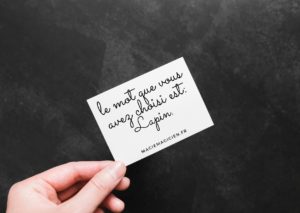 le mot que vous
avez choisi est:
Lapin.
MACIEMAGICIEN.FR